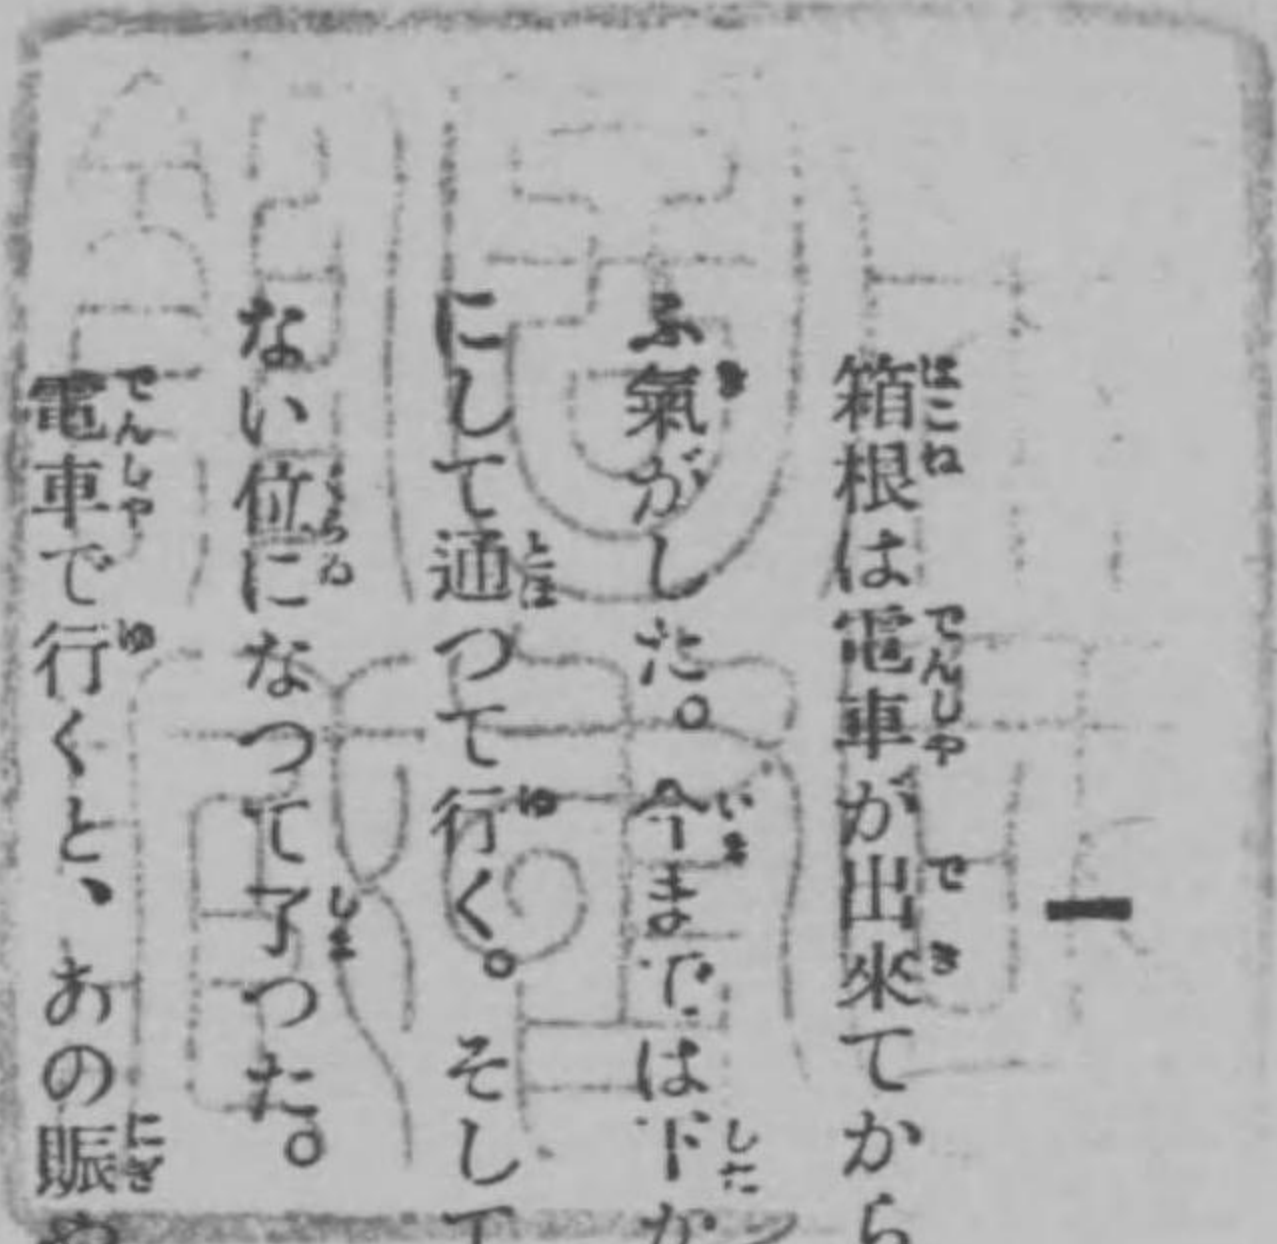 一
箱根は電車が出來てから
ふ氣がした。今までは下か
にして通つて行く。そして
ない位になつて了つた。
電車で行くと、あの賑や